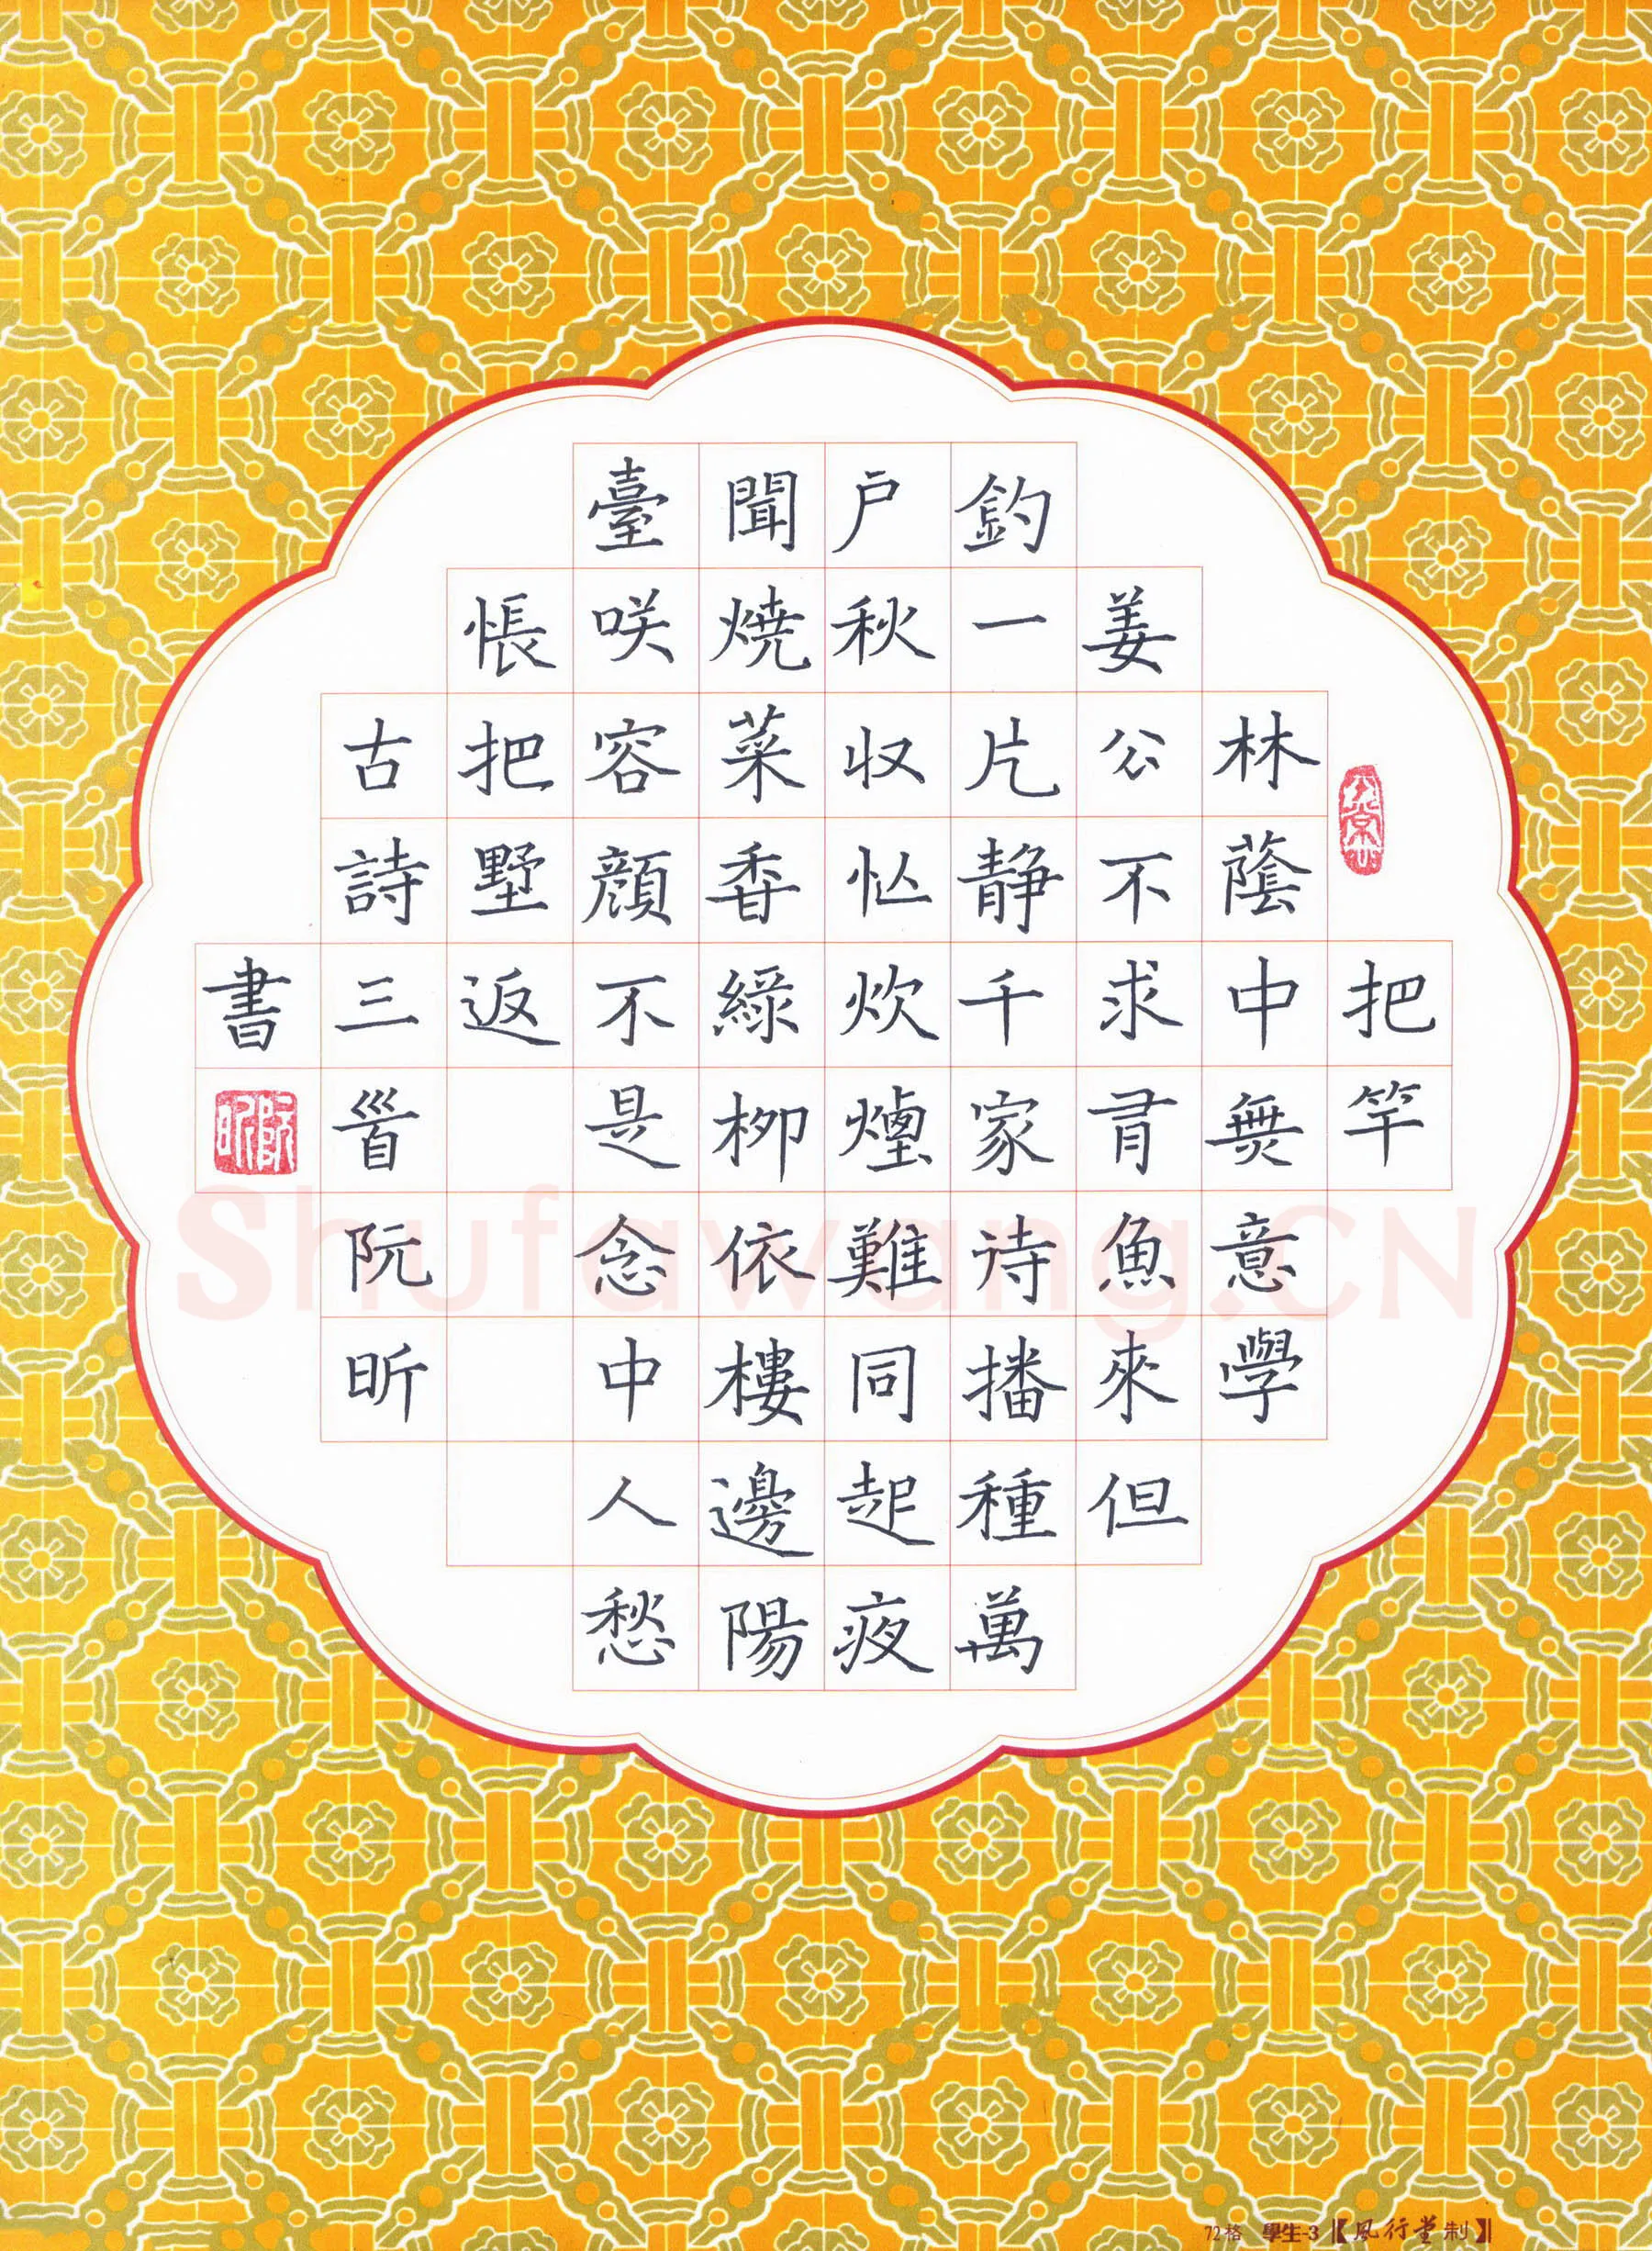 把竿
林蔭中無意學
姜公不求有魚來但
釣一片静千家待播種萬
户秋收忙炊煙難同起夜
聞焼菜香緑柳依樓邊陽
臺咲容顔不是念中人愁
悵把墅返
古詩三首阮昕
書
阮昕
Shufawang.CN
72格 學生-3 【風行堂制】